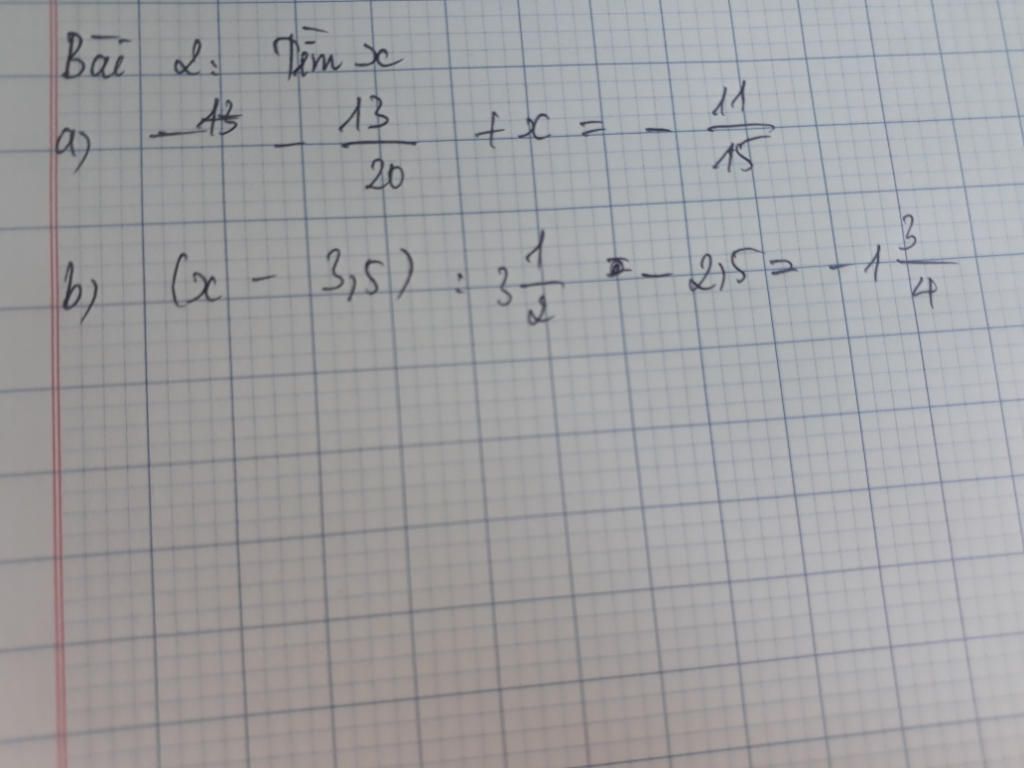 Bài 2: Tìm x
a) - 13/20 + x = - 11/15
b) (x - 3,5) : 3 1/2 - 2,5 = - 1 3/4